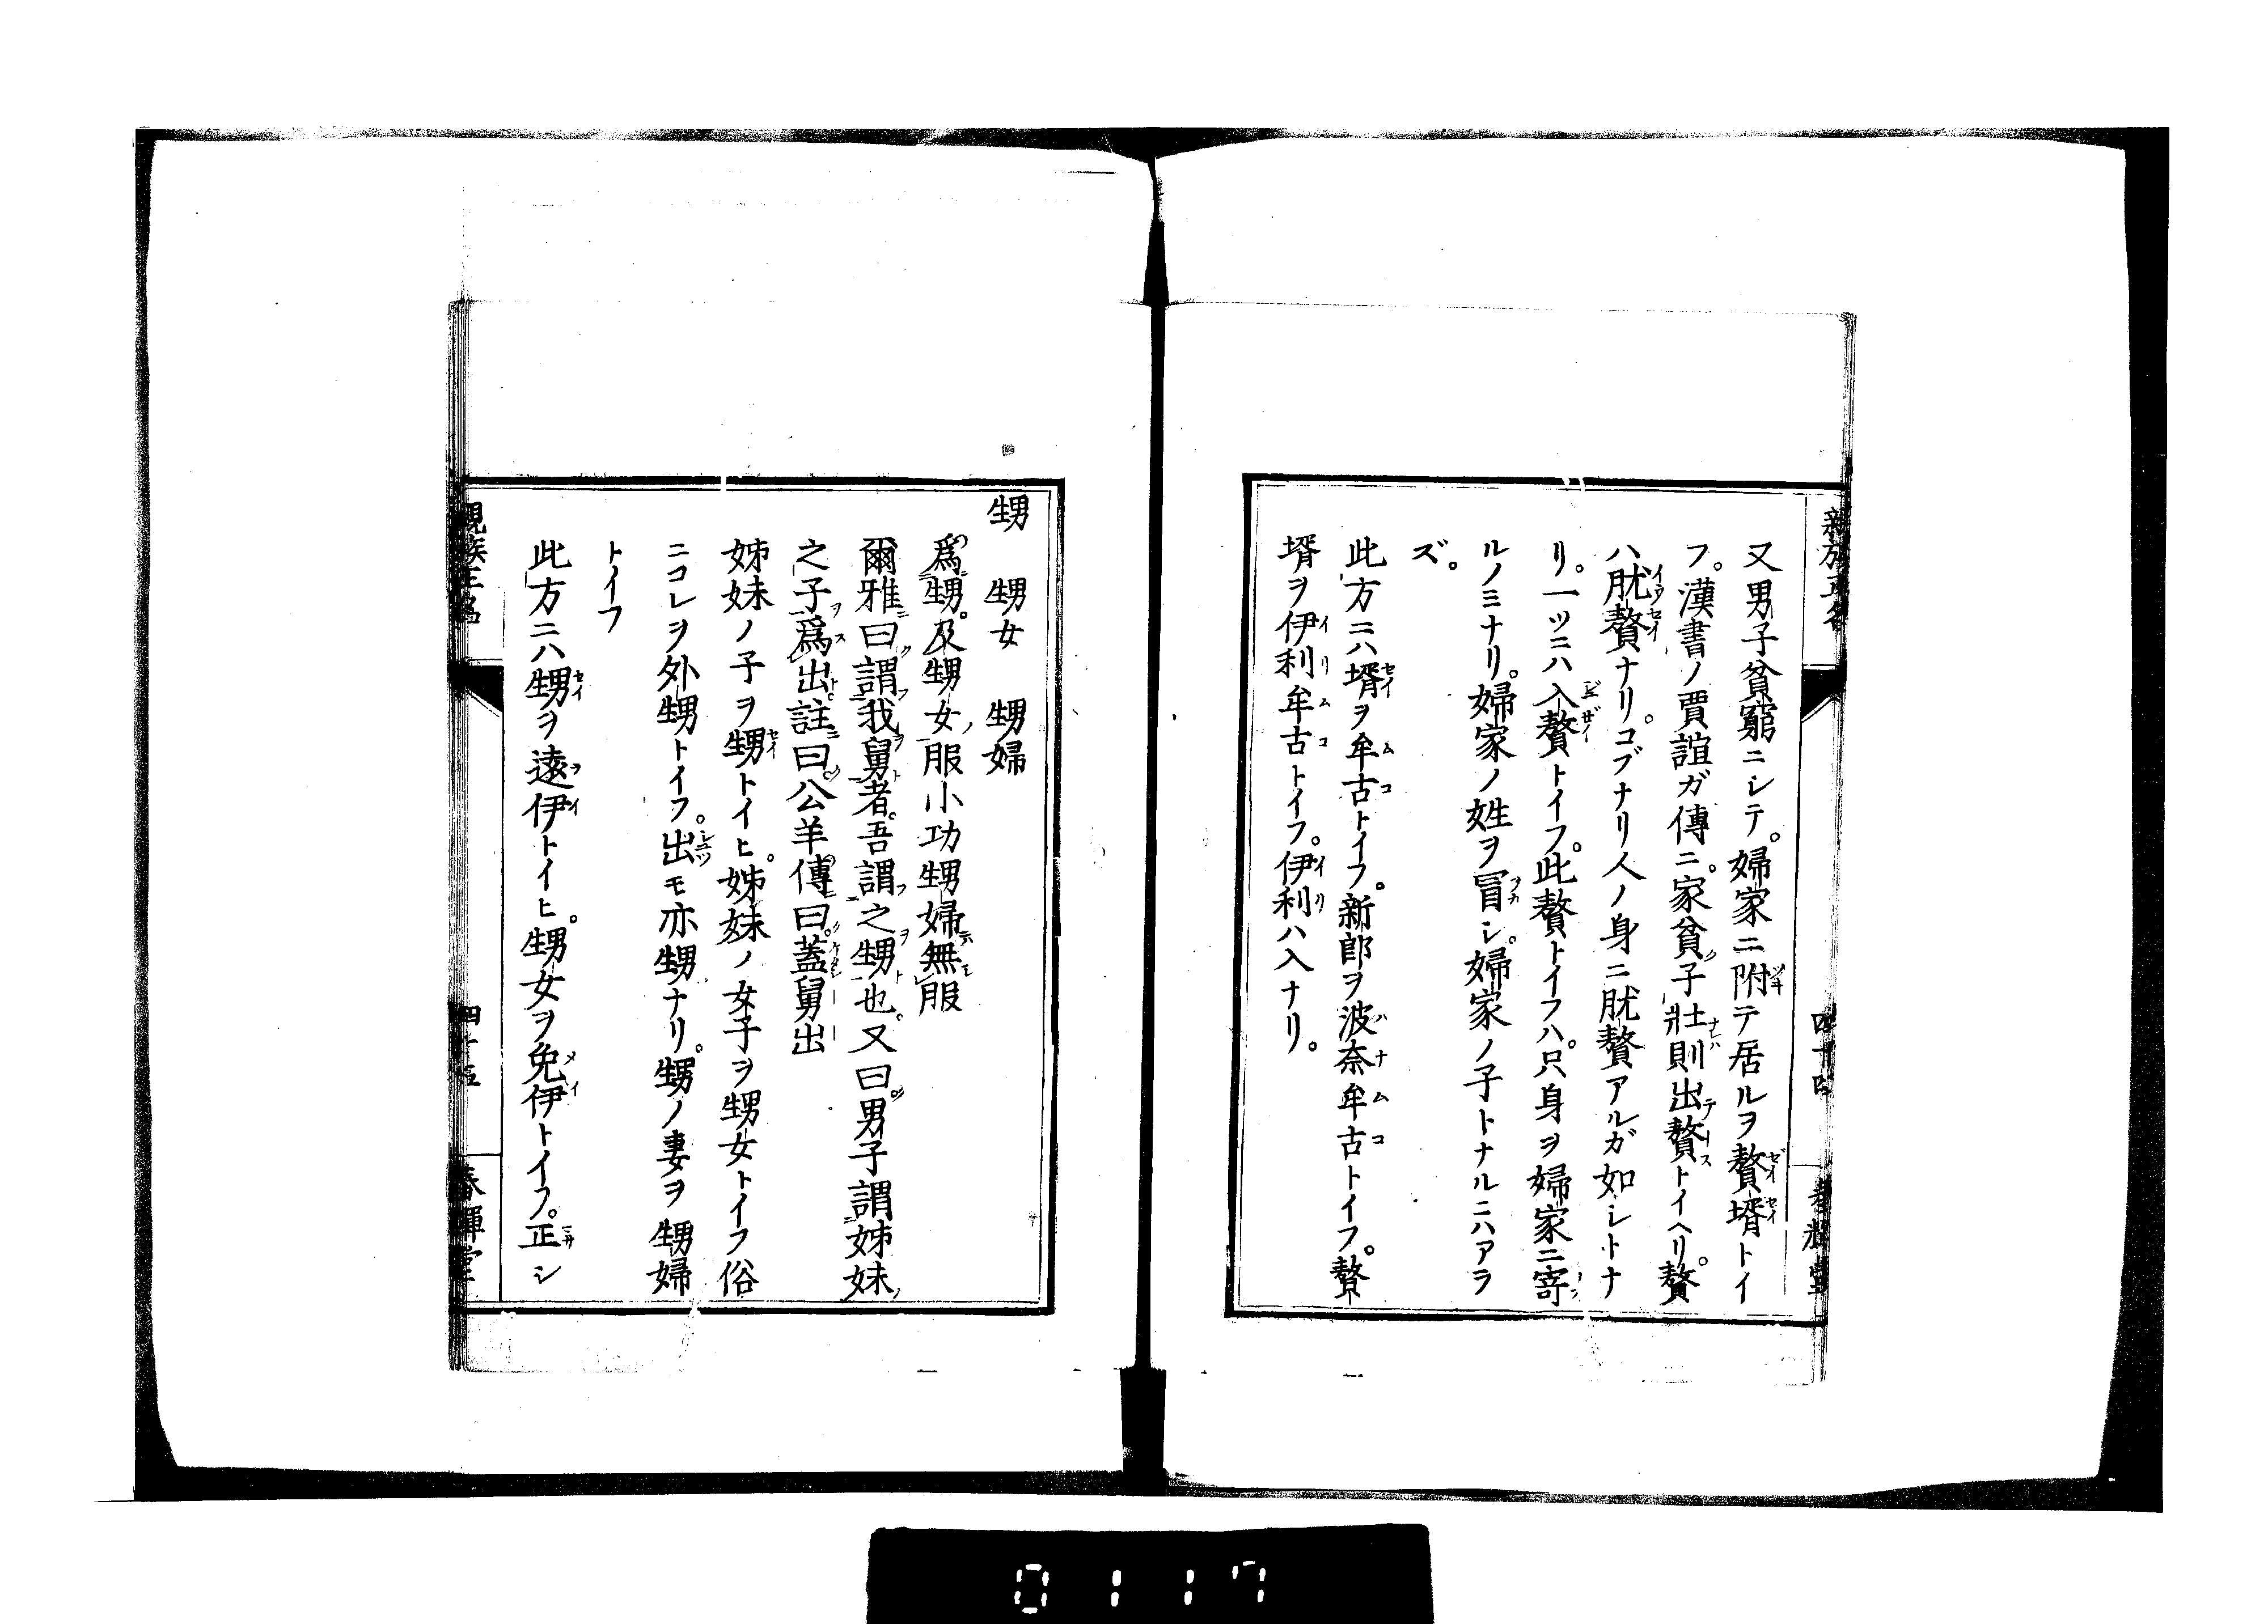 又男子貧窮ニシテ。婦家ニ附テ居ルヲ贅壻トイ
フ。漢書ノ賈誼ガ傳ニ。家貧子壯則出贅トイヘリ。贅
ハ肬贅ナリ。コブナリ人ノ身ニ肬贅アルガ如シトナ
リ。一ツニハ入贅トイフ。此贅トイフハ。只身ヲ婦家ニ寄
ルノミナリ。婦家ノ姓ヲ冒シ。婦家ノ子トナルニハアラ
ズ。
此方ニハ壻ヲ牟古トイフ。新郎ヲ波奈牟古トイフ。贅
壻ヲ伊利牟古トイフ。伊利ハ入ナリ。
甥 甥女 甥婦
爲甥。及甥女服小功甥婦無服
爾雅曰謂我舅者。吾謂之甥也。又曰男子謂姊妹
之子爲出。註曰公羊傳曰。蓋舅出
姊妹ノ子ヲ甥トイヒ。姊妹ノ女子ヲ甥女トイフ俗
ニコレヲ外甥トイフ。出モ亦甥ナリ。甥ノ妻ヲ甥婦
トイフ
此方ニハ甥ヲ遠伊トイヒ。甥女ヲ免伊トイフ。正シ
親族正名
四十五
春暉堂
0117